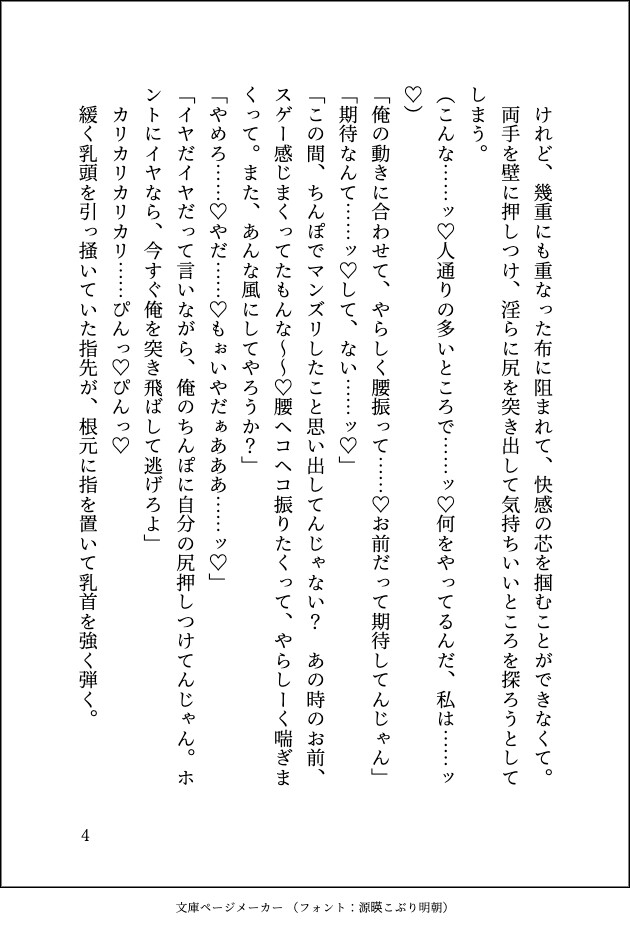 けれど、幾重にも重なった布に阻まれて、快感の芯を掴むことができなくて。
両手を壁に押しつけ、淫らに尻を突き出して気持ちいいところを探ろうとして
しまう。
（こんな……ッ♡人通りの多いところで……ッ♡何をやってるんだ、私は……ッ
♡）
「俺の動きに合わせて、やらしく腰振って……♡お前だって期待してんじゃん」
「期待なんて……ッ♡して、ない……ッ♡」
「この間、ちんぽでマンズリしたこと思い出してんじゃない？　あの時のお前、
スゲー感じまくってたもんな〜〜♡腰ヘコヘコ振りたくって、やらしーく喘ぎま
くって。また、あんな風にしてやろうか？」
「やめろ……♡やだ……♡もぉいやだぁあああ……ッ♡」
「イヤだイヤだって言いながら、俺のちんぽに自分の尻押しつけてんじゃん。ホ
ントにイヤなら、今すぐ俺を突き飛ばして逃げろよ」
カリカリカリカリ……ぴんっ♡ぴんっ♡
緩く乳頭を引っ掻いていた指先が、根元に指を置いて乳首を強く弾く。
4
文庫ページメーカー（フォント：源暎こぶり明朝）